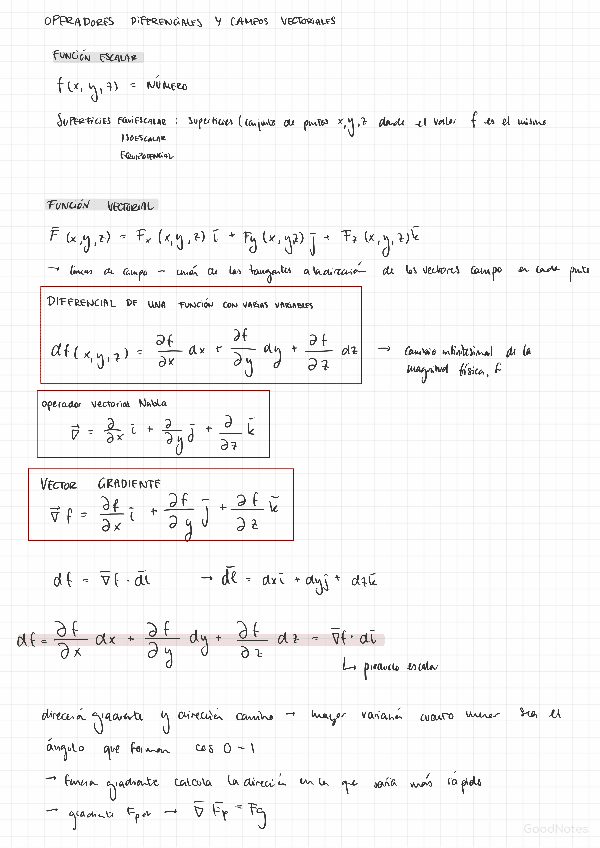 OPERADORES DIFERENCIALES Y CAMPOS VECTORIALES
FUNCIÓN ESCALAR
f(x, y, z) = NÚMERO
SUPERFICIES EQUIESCALAR : superficies (conjunto de puntos x, y, z donde el valor f es el mismo
ISOESCALAR
EQUIPOTENCIAL
FUNCIÓN VECTORIAL
F̄ (x, y, z) = Fx (x, y, z) ī + Fy (x, y z) j̄ + Fz (x, y, z) k̄
→ líneas de campo – unión de las tangentes a la dirección de los vectores campo en cada punto
DIFERENCIAL DE UNA FUNCIÓN CON VARIAS VARIABLES
df(x, y, z) = ∂f/∂x dx + ∂f/∂y dy + ∂f/∂z dz → cambio infinitesimal de la
magnitud física, f
operador vectorial Nabla
∇⃗ = ∂/∂x ī + ∂/∂y j̄ + ∂/∂z k̄
VECTOR GRADIENTE
∇⃗ f = ∂f/∂x ī + ∂f/∂y j̄ + ∂f/∂z k̄
df = ∇̄f · d̄l → d̄l = dx ī + dy j̄ + dz k̄
df = ∂f/∂x dx + ∂f/∂y dy + ∂f/∂z dz = ∇̄f · dl̄
↳ producto escalar
dirección gradiente y dirección camino → mayor variación cuanto menor sea el
ángulo que forman cos 0 = 1
→ función gradiente calcula la dirección en la que varía más rápido
→ gradiente Epot → ∇̄ Ep = Fg
GoodNotes